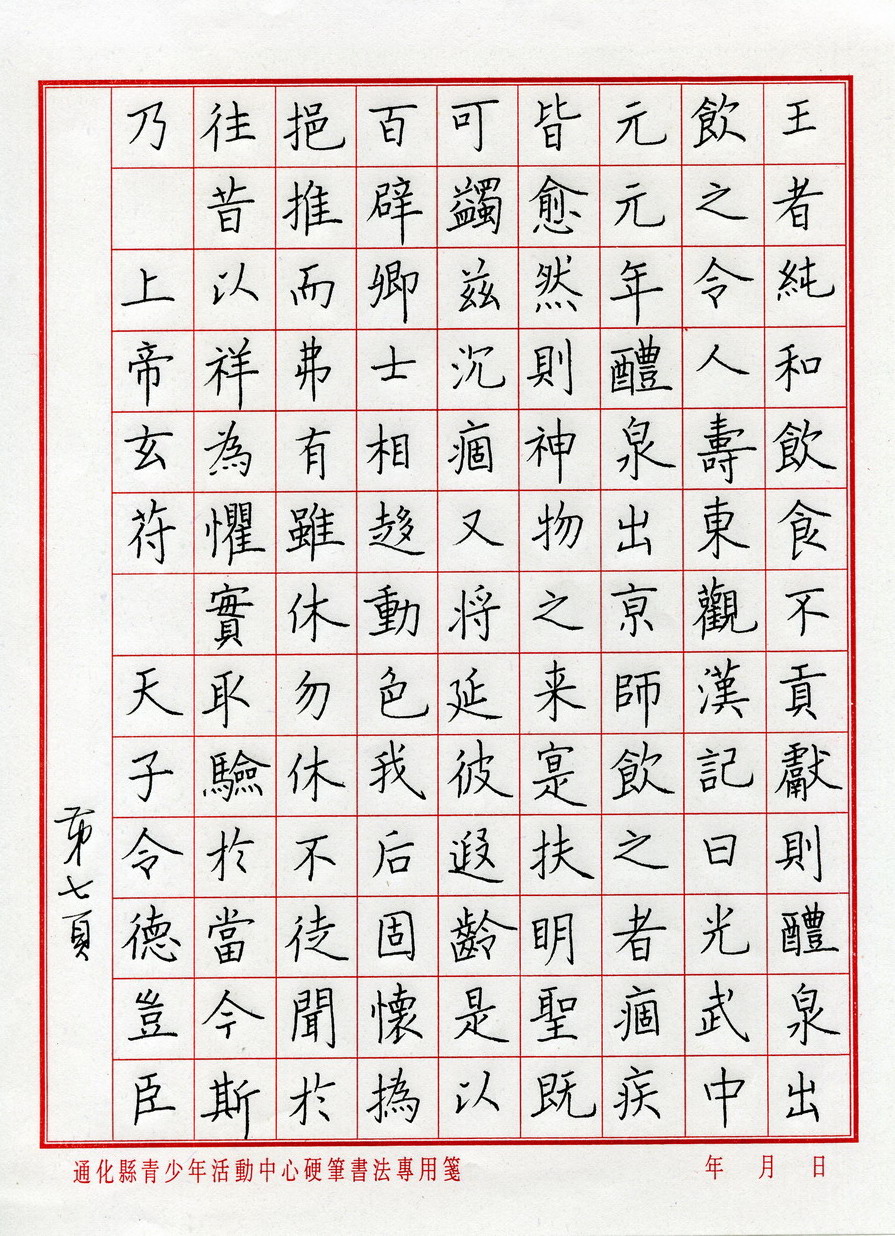 王者純和飲食不貢獻則醴泉出
飲之令人壽東觀漢記曰光武中
元元年醴泉出京師飲之者痼疾
皆愈然則神物之来寔扶明聖既
可蠲兹沉痼又将延彼遐齡是以
百辟卿士相趍動色我后固懷撝
挹推而弗有雖休勿休不徒聞於
往昔以祥為懼實取驗於當今斯
乃 上帝玄苻 天子令德豈臣
第七頁
通化縣青少年活動中心硬筆書法專用箋 年 月 日